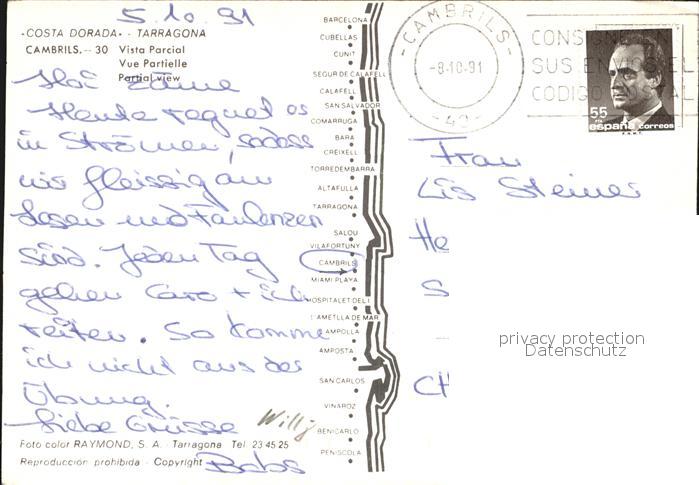 5.10.91
"COSTA DORADA" - TARRAGONA
CAMBRILS.-- 30 Vista Parcial
Vue Partielle
Partial view
Hoi zäme
Heute regnet es
in Strömen, sodass
wir fleissig am
Lesen und Faulenzen
sind. Jeden Tag
gehen Caro + ich
reiten. So komme
ich nicht aus der
Übung.
Liebe Grüsse Willy
Babs
Foto color RAYMOND, S. A. - Tarragona Tel. 23 45 25
Reproducción prohibida - Copyright
BARCELONA
CUBELLAS
CUNIT
SEGUR DE CALAFELL
CALAFELL
SAN SALVADOR
COMARRUGA
BARA
CREIXELL
TORREDEMBARRA
ALTAFULLA
TARRAGONA
SALOU
VILAFORTUNY
CAMBRILS
MIAMI PLAYA
HOSPITALET DEL I.
L'AMETLLA DE MAR
AMPOLLA
AMPOSTA
SAN CARLOS
VINAROZ
BENICARLO
PEÑISCOLA
-CAMBRILS-
-8-10-91
CONSIGNE
SUS ENVIOS EL
CODIGO
55
PTA
españa correos
F.N.M.T.
Frau
Lis Steiner
He
S
CH
privacy protection
Datenschutz